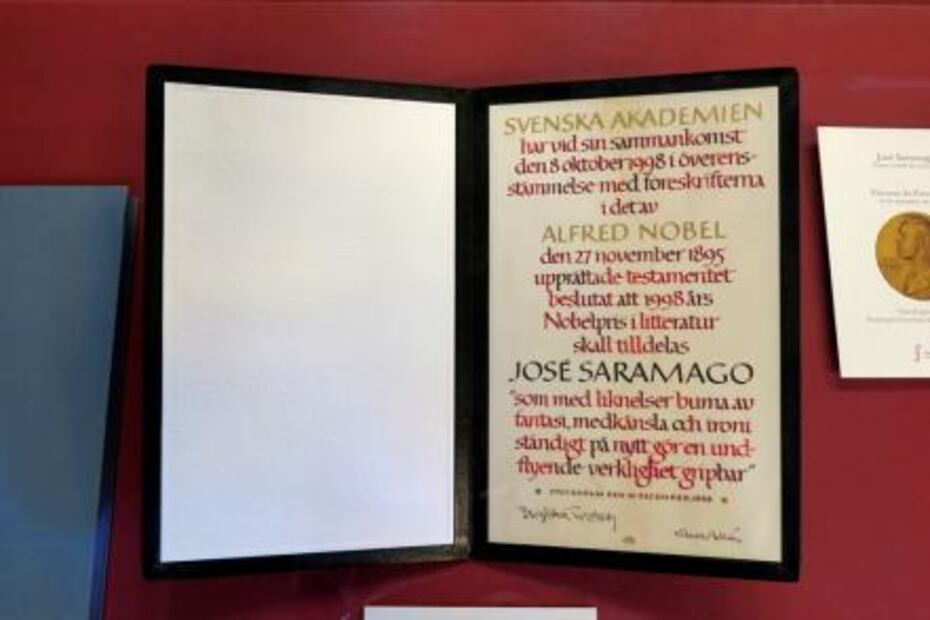 SVENSKA AKADEMIEN
har vid sin sammankomst
den 8 oktober 1998 i överens-
stämmelse med föreskrifterna
i det av
ALFRED NOBEL
den 27 november 1895
upprättade testamentet
beslutat att 1998 års
Nobelpris i litteratur
skall tilldelas
JOSÉ SARAMAGO
"som med liknelser burna av
fantasi, medkänsla och ironi
ständigt på nytt gör en und-
flyende verklighet gripbar"
STOCKHOLM DEN 10 DECEMBER 1998
José